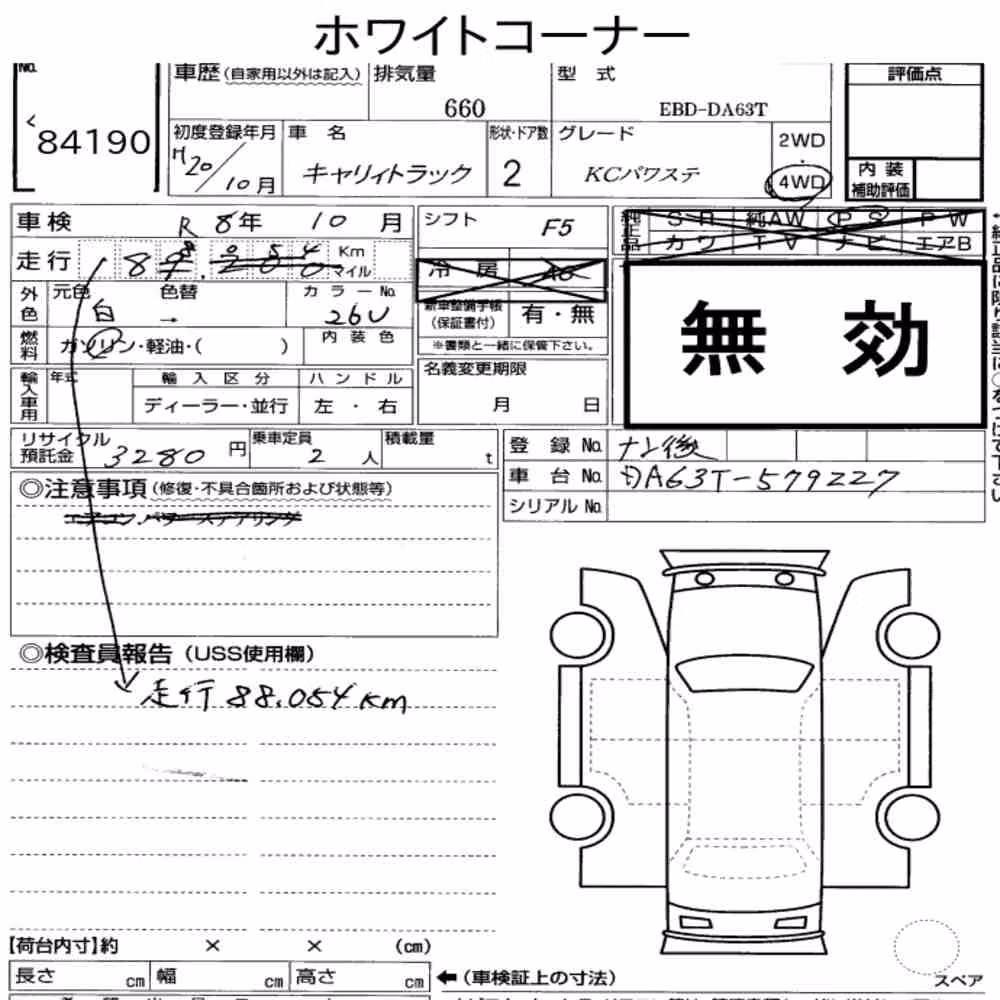 ホワイトコーナー
No.
84190
車歴 (自家用以外は記入)
排気量
660
型 式
EBD-DA63T
評価点
初度登録年月
H20/10月
車 名
キャリィトラック
形状・ドア数
2
グレード
KCパワステ
2WD
・
4WD
内 装
補助評価
車検 R 8年 10月
シフト F5
純正品
SR 純AW PS PW
カワ TV ナビ エアB
走行
Km
マイル
冷房 AC
無 効
外色
元色 白
色替 →
カラーNo. 26U
新車整備手帳
(保証書付)
有・無
※書類と一緒に保管下さい。
燃料
ガソリン・軽油・( )
内 装 色
名義変更期限
月 日
輸入車用
年式
輸入区分
ハンドル
ディーラー・並行
左・右
リサイクル
預託金 3280円
乗車定員
2人
積載量
t
登 録 No. ナシ後
車 台 No. DA63T-579227
シリアル No.
◎注意事項 (修復・不具合箇所および状態等)
エアコン.パワーステアリング
◎検査員報告 (USS使用欄)
走行 88.054km
【荷台内寸】約 × × (cm)
長さ cm 幅 cm 高さ cm
←(車検証上の寸法)
スペア